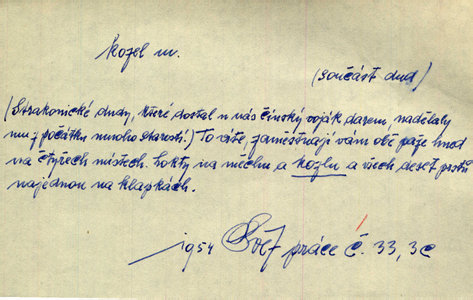 kozel m.
(součást dud)
(Strakonické dudy, které dostal u nás čínský voják darem, nadělaly
mu z počátku mnoho starostí.) To víte, zaměstnají vám obě paže hned
na čtyřech místech. Lokty na měchu a kozlu a všech deset prstů
najednou na klapkách.
1954 Svět práce č. 33, 3c